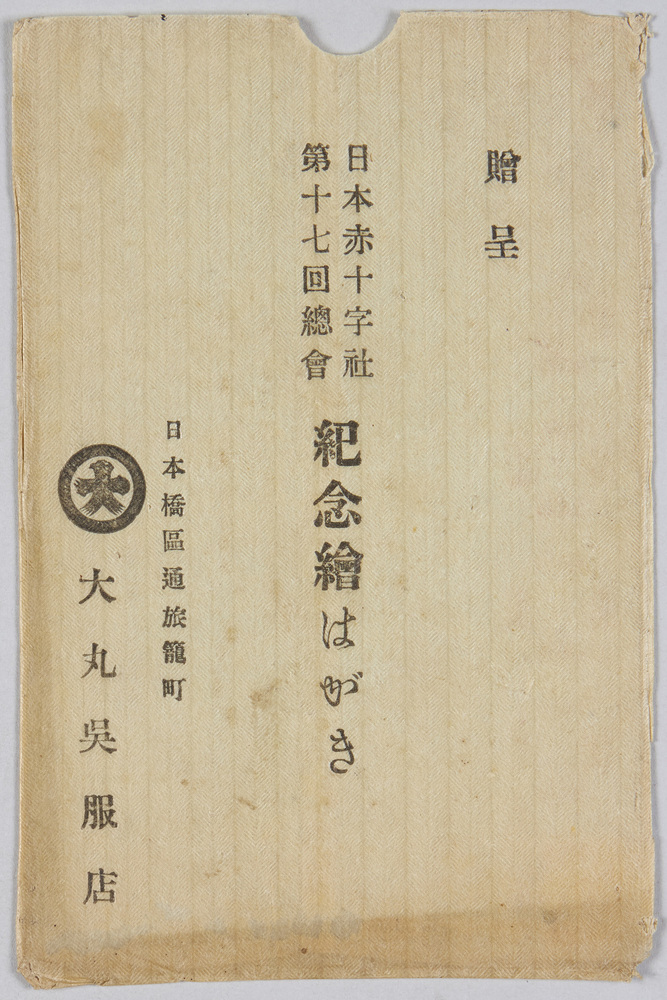 贈呈
日本赤十字社
第十七回總會
紀念繪はがき
日本橋區通旅籠町
大
大丸呉服店